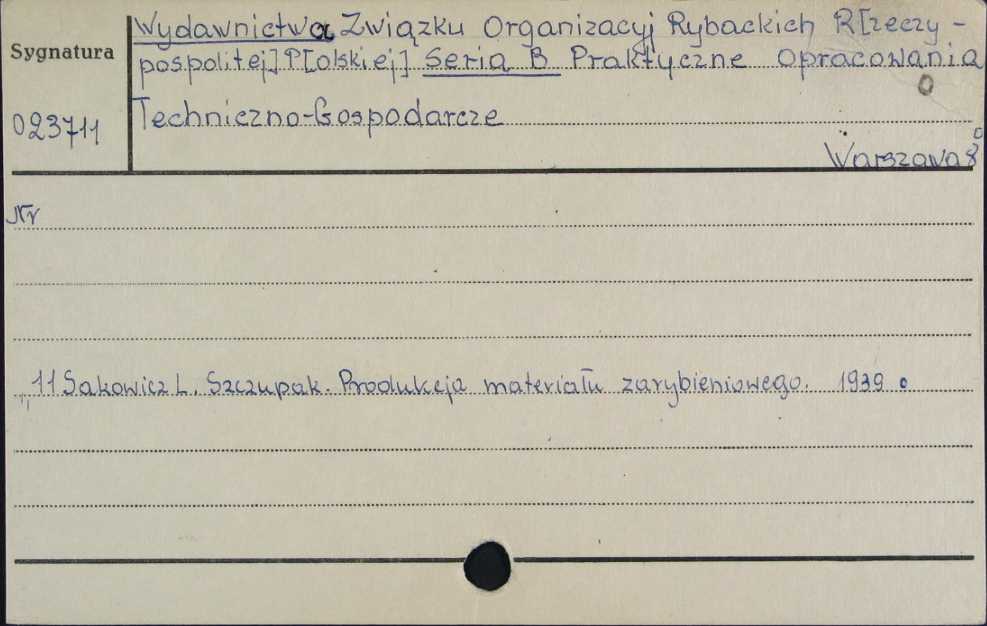 Wydawnictwa Związku Organizacyj Rybackich R[zeczy-
Sygnatura
pospolitej] P[olskiej] Seria B Praktyczne Opracowania
023711
Techniczno-Gospodarcze
Warszawa 8°
Nr
11 Sakowicz L. Szczupak. Produkcja materiału zarybieniowego. 1939